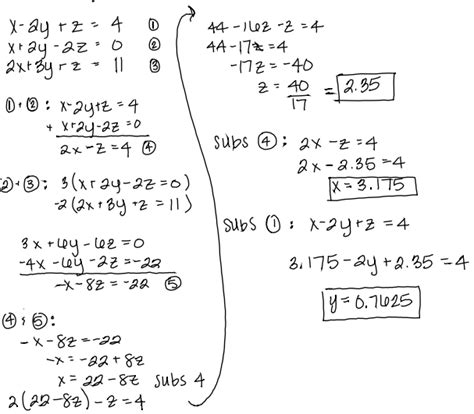 x-2y+z = 4 ①
x+2y-2z = 0 ②
2x+3y+z = 11 ③
①+②: x-2y+z=4
+ x+2y-2z=0
2x-z=4 ④
②+③: 3(x+2y-2z=0)
-2(2x+3y+z=11)
3x+6y-6z=0
-4x-6y-2z=-22
-x-8z=-22 ⑤
④ & ⑤:
-x-8z=-22
-x=-22+8z
x=22-8z subs 4
2(22-8z)-z=4
44-16z-z=4
44-17z=4
-17z=-40
z=40/17 = 2.35
subs ④: 2x-z=4
2x-2.35=4
x=3.175
subs ①: x-2y+z=4
3.175-2y+2.35=4
y=0.7625